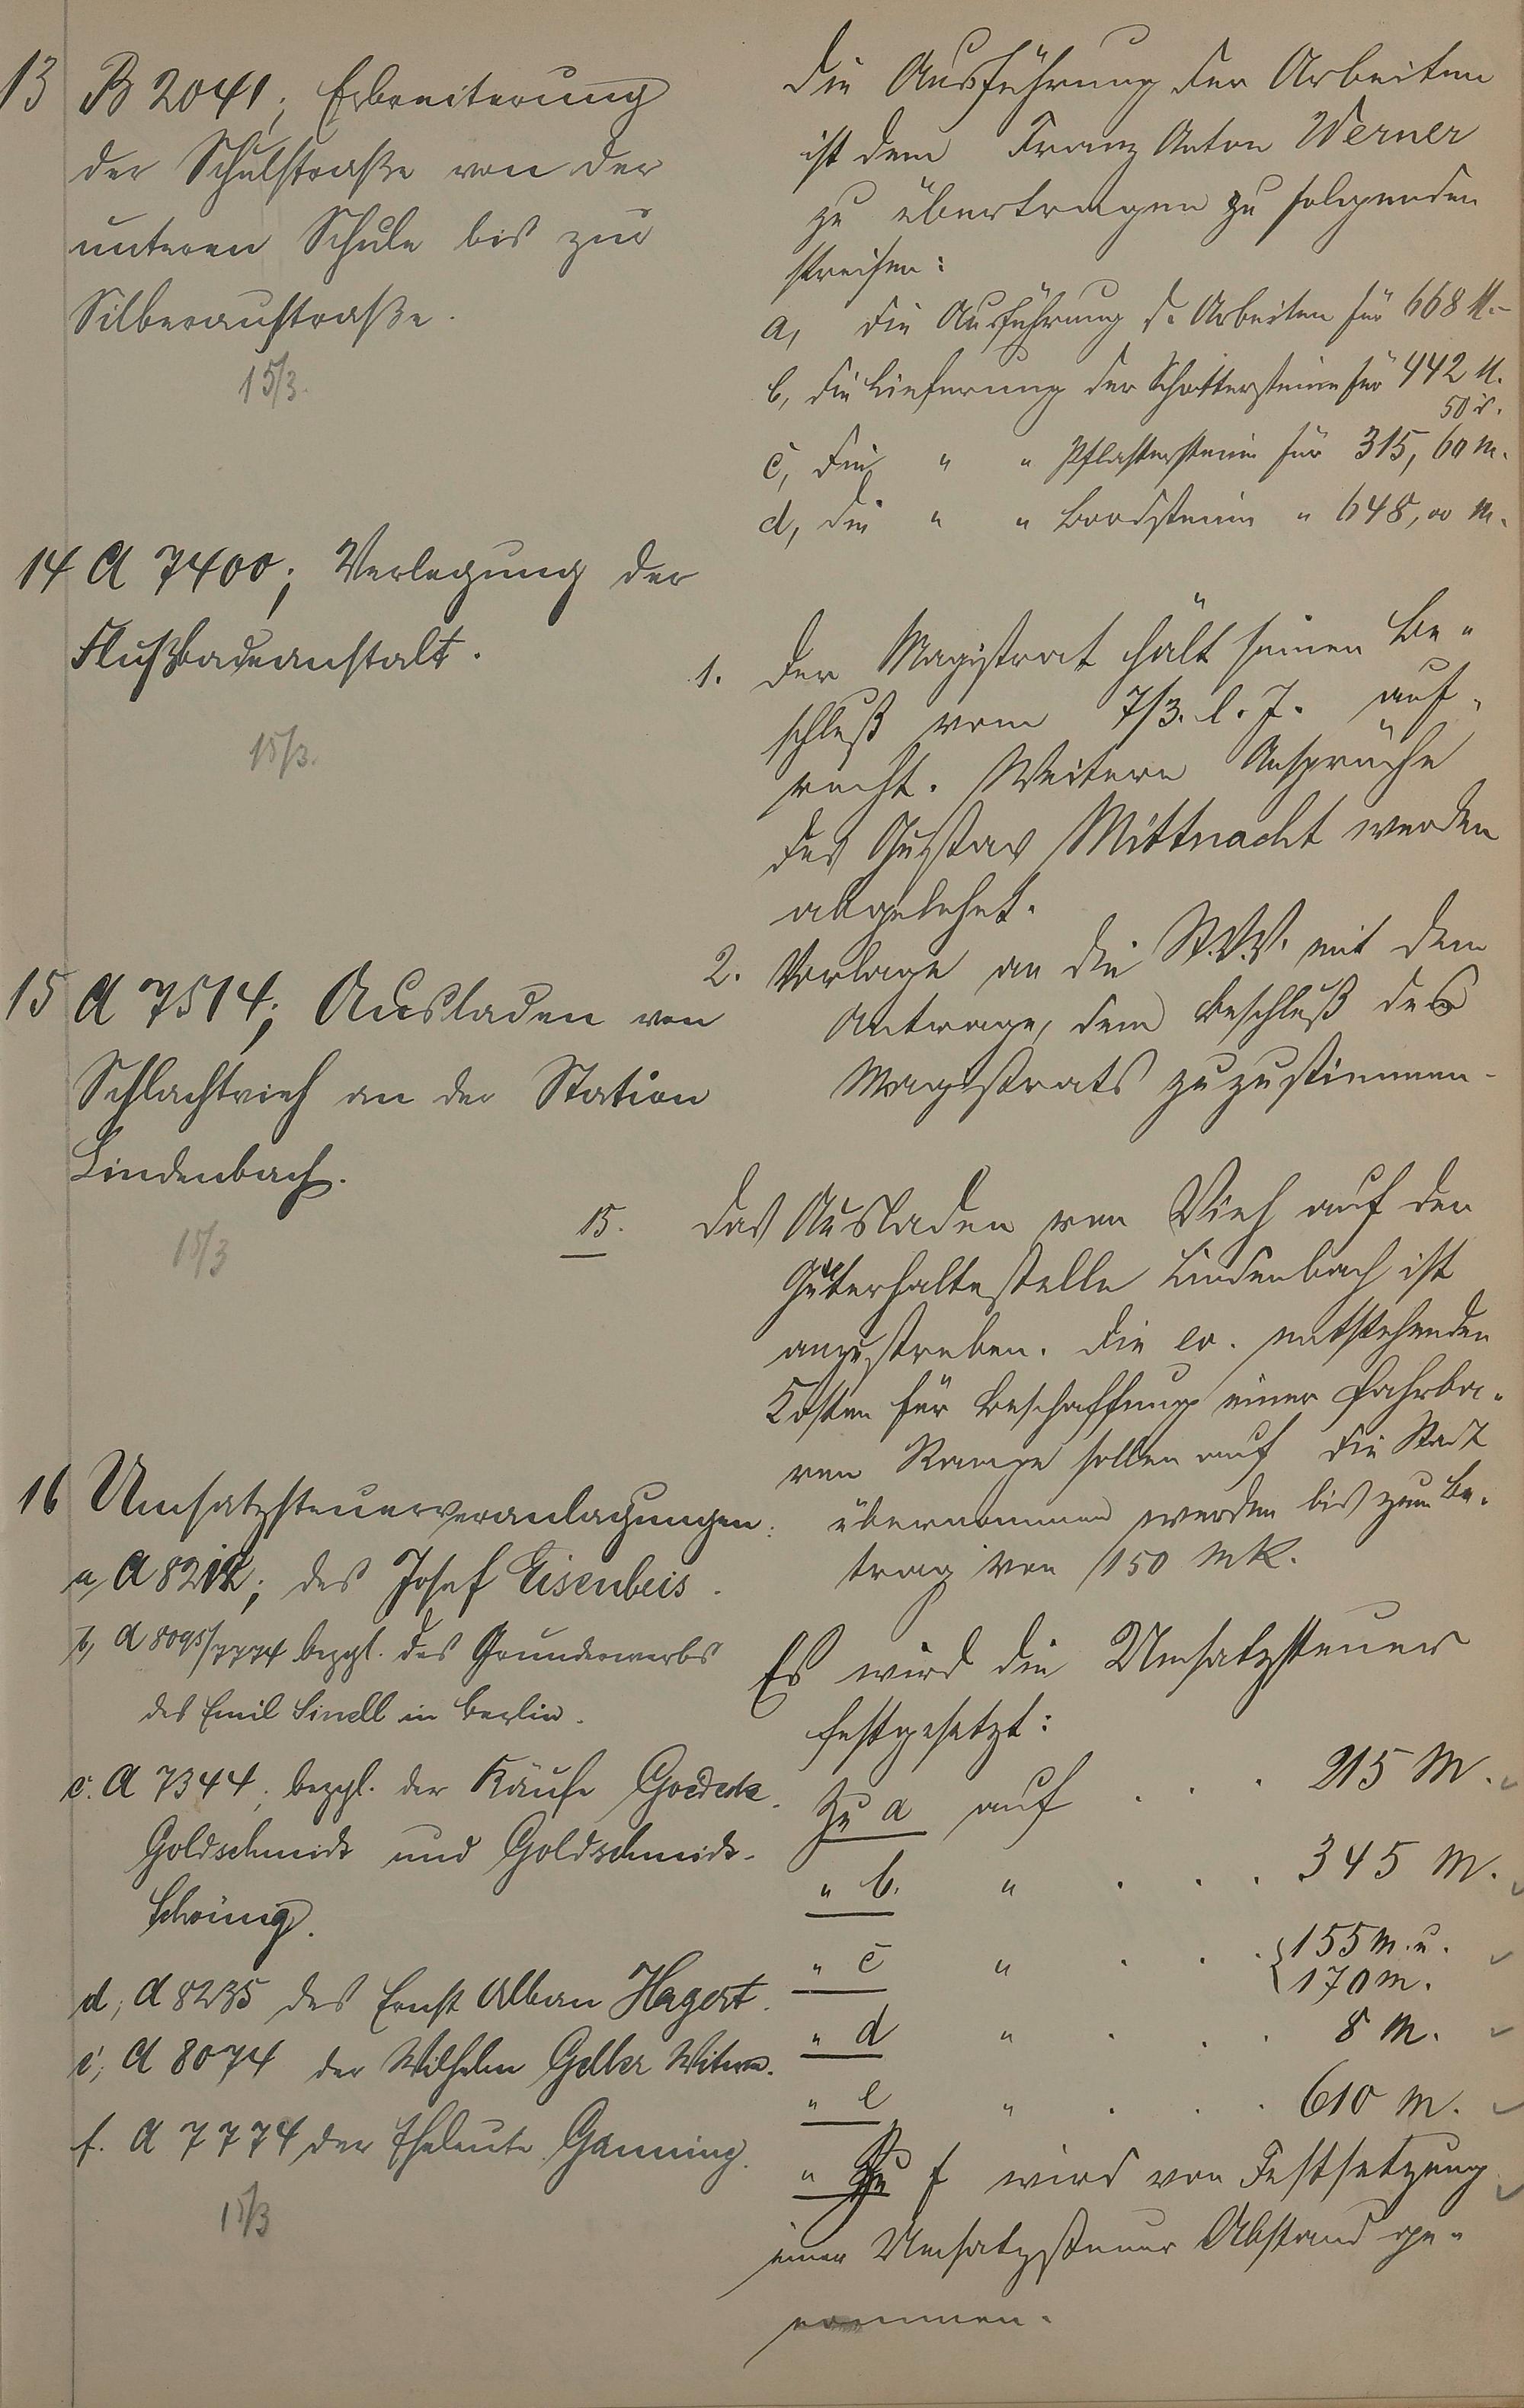 13 B 2041; Erbreiterung
der Schulstraße von der
unteren Schule bis zur
Silberaustraße.
15/3.
Die Ausführung der Arbeiten
ist dem Franz Anton Werner
zu übertragen zu folgenden
Preisen:
a, die Ausführung d. Arbeiten für 668 M.-
b, die Lieferung der Schottersteine für 442 M.
50 d.
c, die " " Pflastersteine für 315,60 M.
d, die " " Bordsteine " 648,00 M.
14 A 7400; Verlegung der
Flußbadeanstalt.
15/3.
1. Der Magistrat hält seinen Be-
schluß vom 7/3. l. J. auf-
recht. Weitere Ansprüche
des Gustav Mittnacht werden
abgelehnt.
2. Vorlage an die St.V.V. mit dem
Antrage, dem Beschluß des
Magistrats zuzustimmen.
15 A 7514; Ausladen von
Schlachtvieh an der Station
Lindenbach.
15/3
15. Das Ausladen von Vieh auf der
Güterhaltestelle Lindenbach ist
anzustreben. Die ev. entstehenden
Kosten für Beschaffung einer fahrba-
ren Rampe sollen auf die Stadt
übernommen werden bis zum Be-
trag von 150 Mk.
16 Umsatzsteuerveranlagungen:
a, A 8212; des Josef Eisenbeis.
b, A 8095/7774 bezgl. des Grunderwerbs
des Emil Sinell in Berlin.
c. A 7344; bezgl. der Käufe Goedecke-
Goldschmidt und Goldschmidt-
Schönig.
d, A 8235 des Ernst Alban Hagert.
e, A 8074 der Wilhelm Geller Witwe.
f. A 7774 der Eheleute Ganning.
15/3
Es wird die Umsatzsteuer
festgesetzt:
Zu a auf . . . 215 M.
" b. " . . . 345 M.
" c " . . . 155 M. u.
170 M.
" d " . . . 8 M.
" e " . . . 610 M.
" Zu f wird von Festsetzung
einer Umsatzsteuer Abstand ge-
nommen.